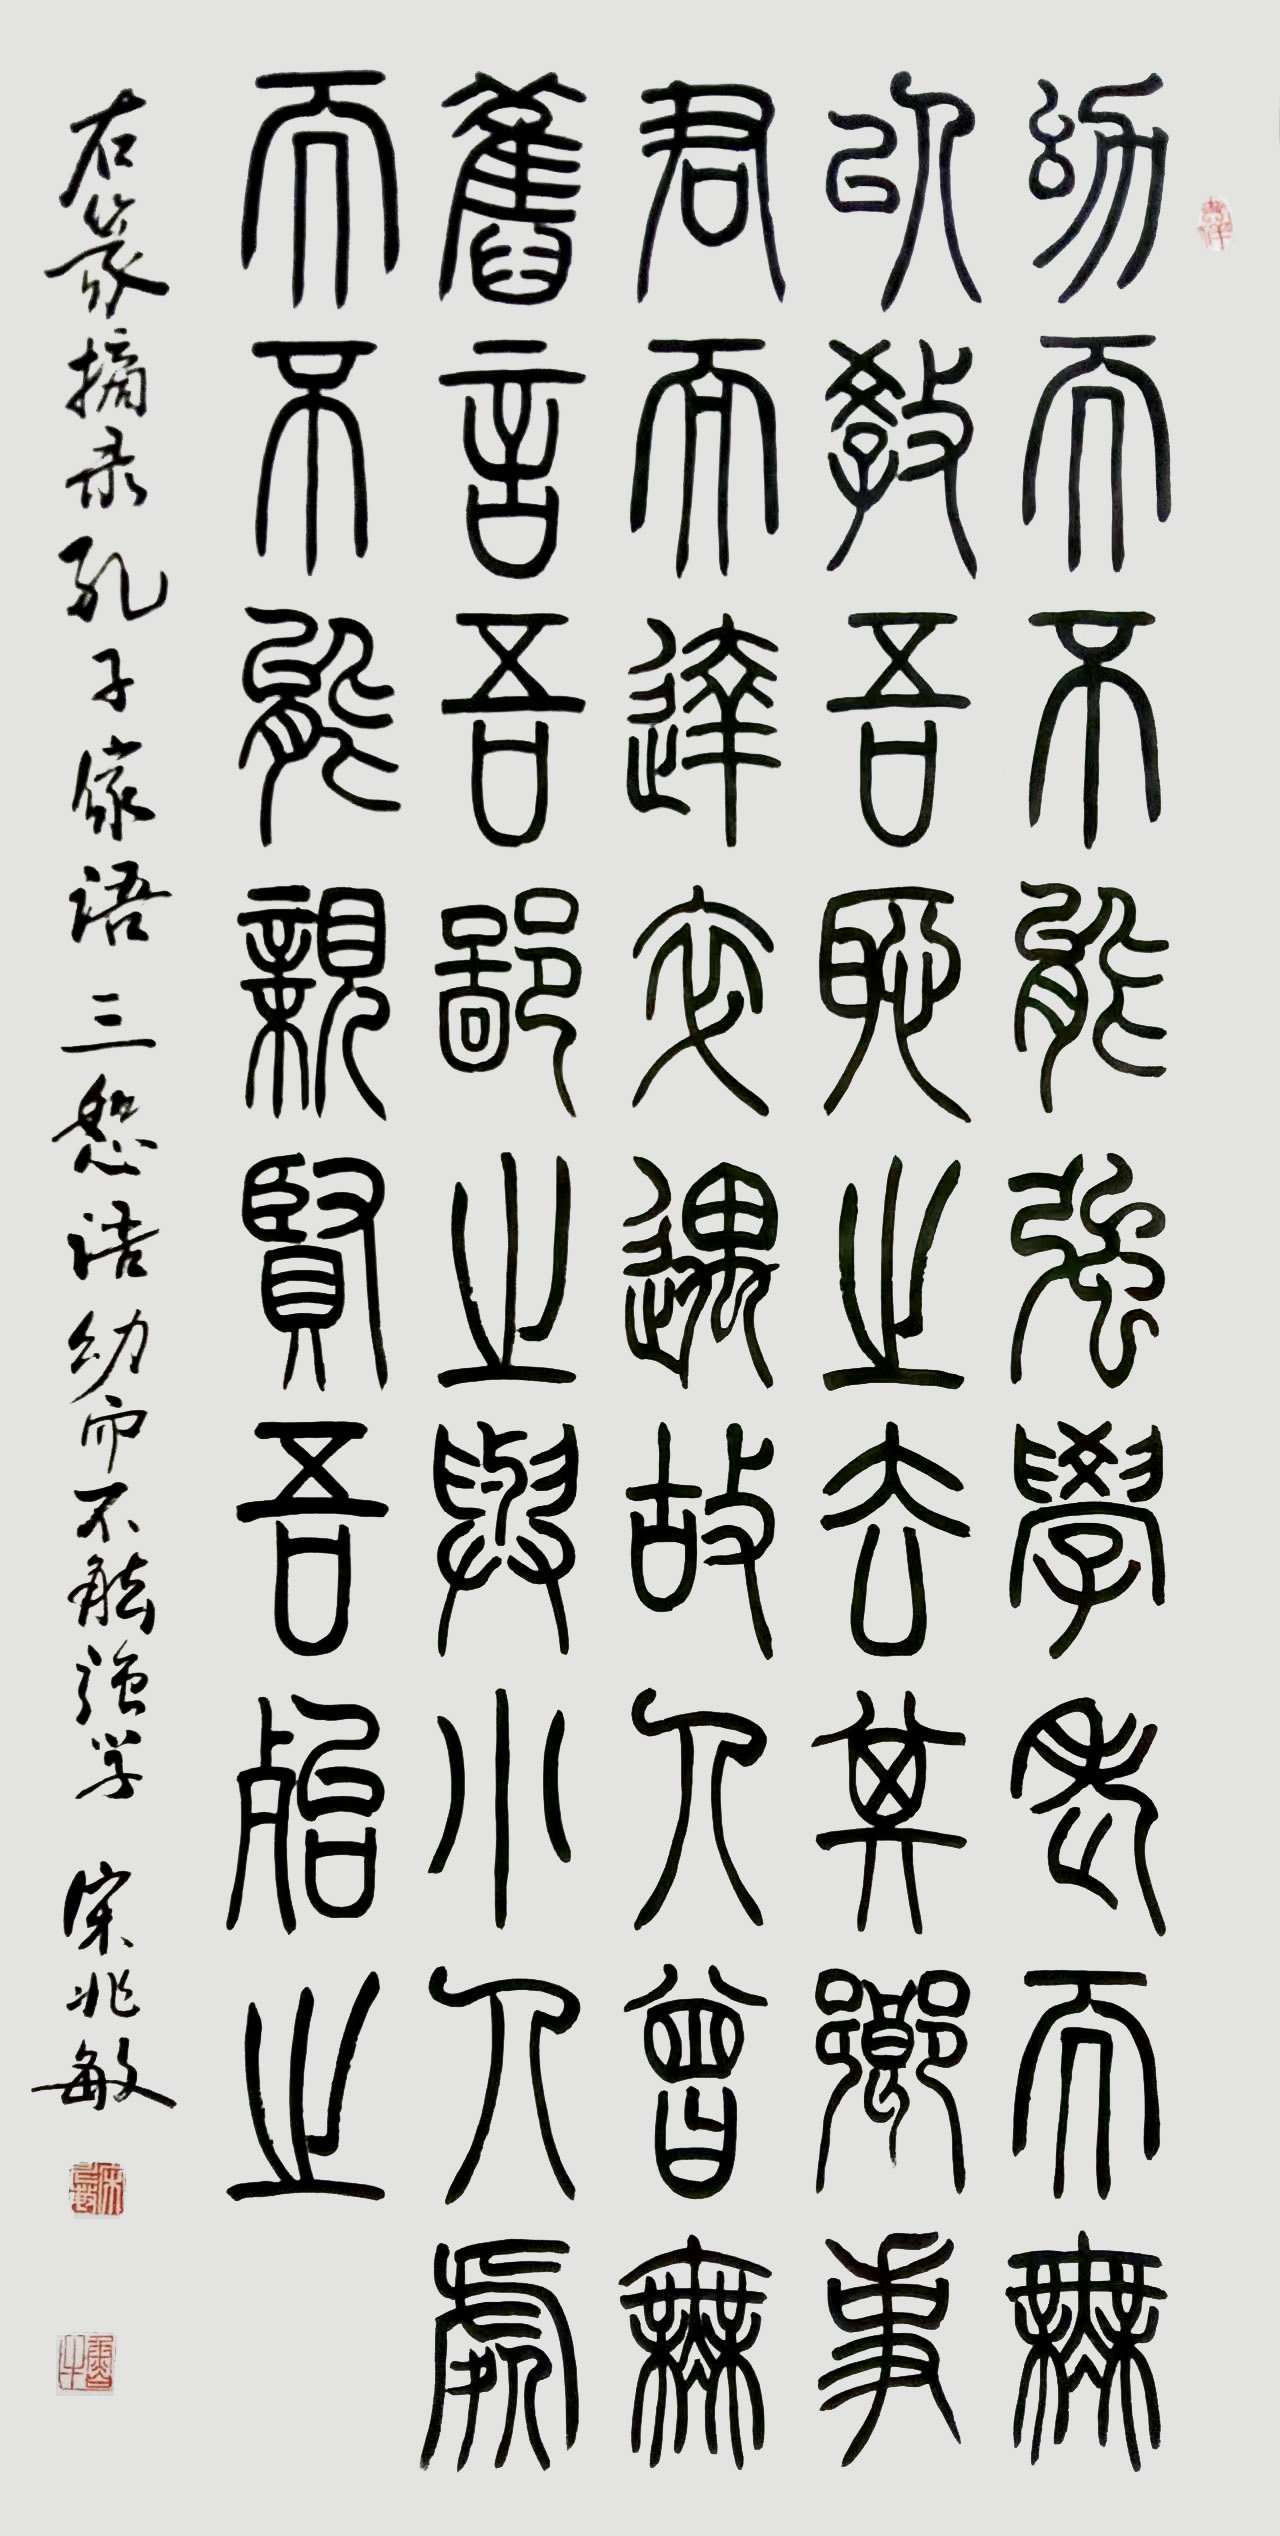 幼而不能強學老而無
以教吾恥之去其鄉事
君而達卒遇故人曾無
舊言吾鄙之與小人處
而不能親賢吾殆之
右篆摘录孔子家语三恕语幼而不能强学 宋兆敏